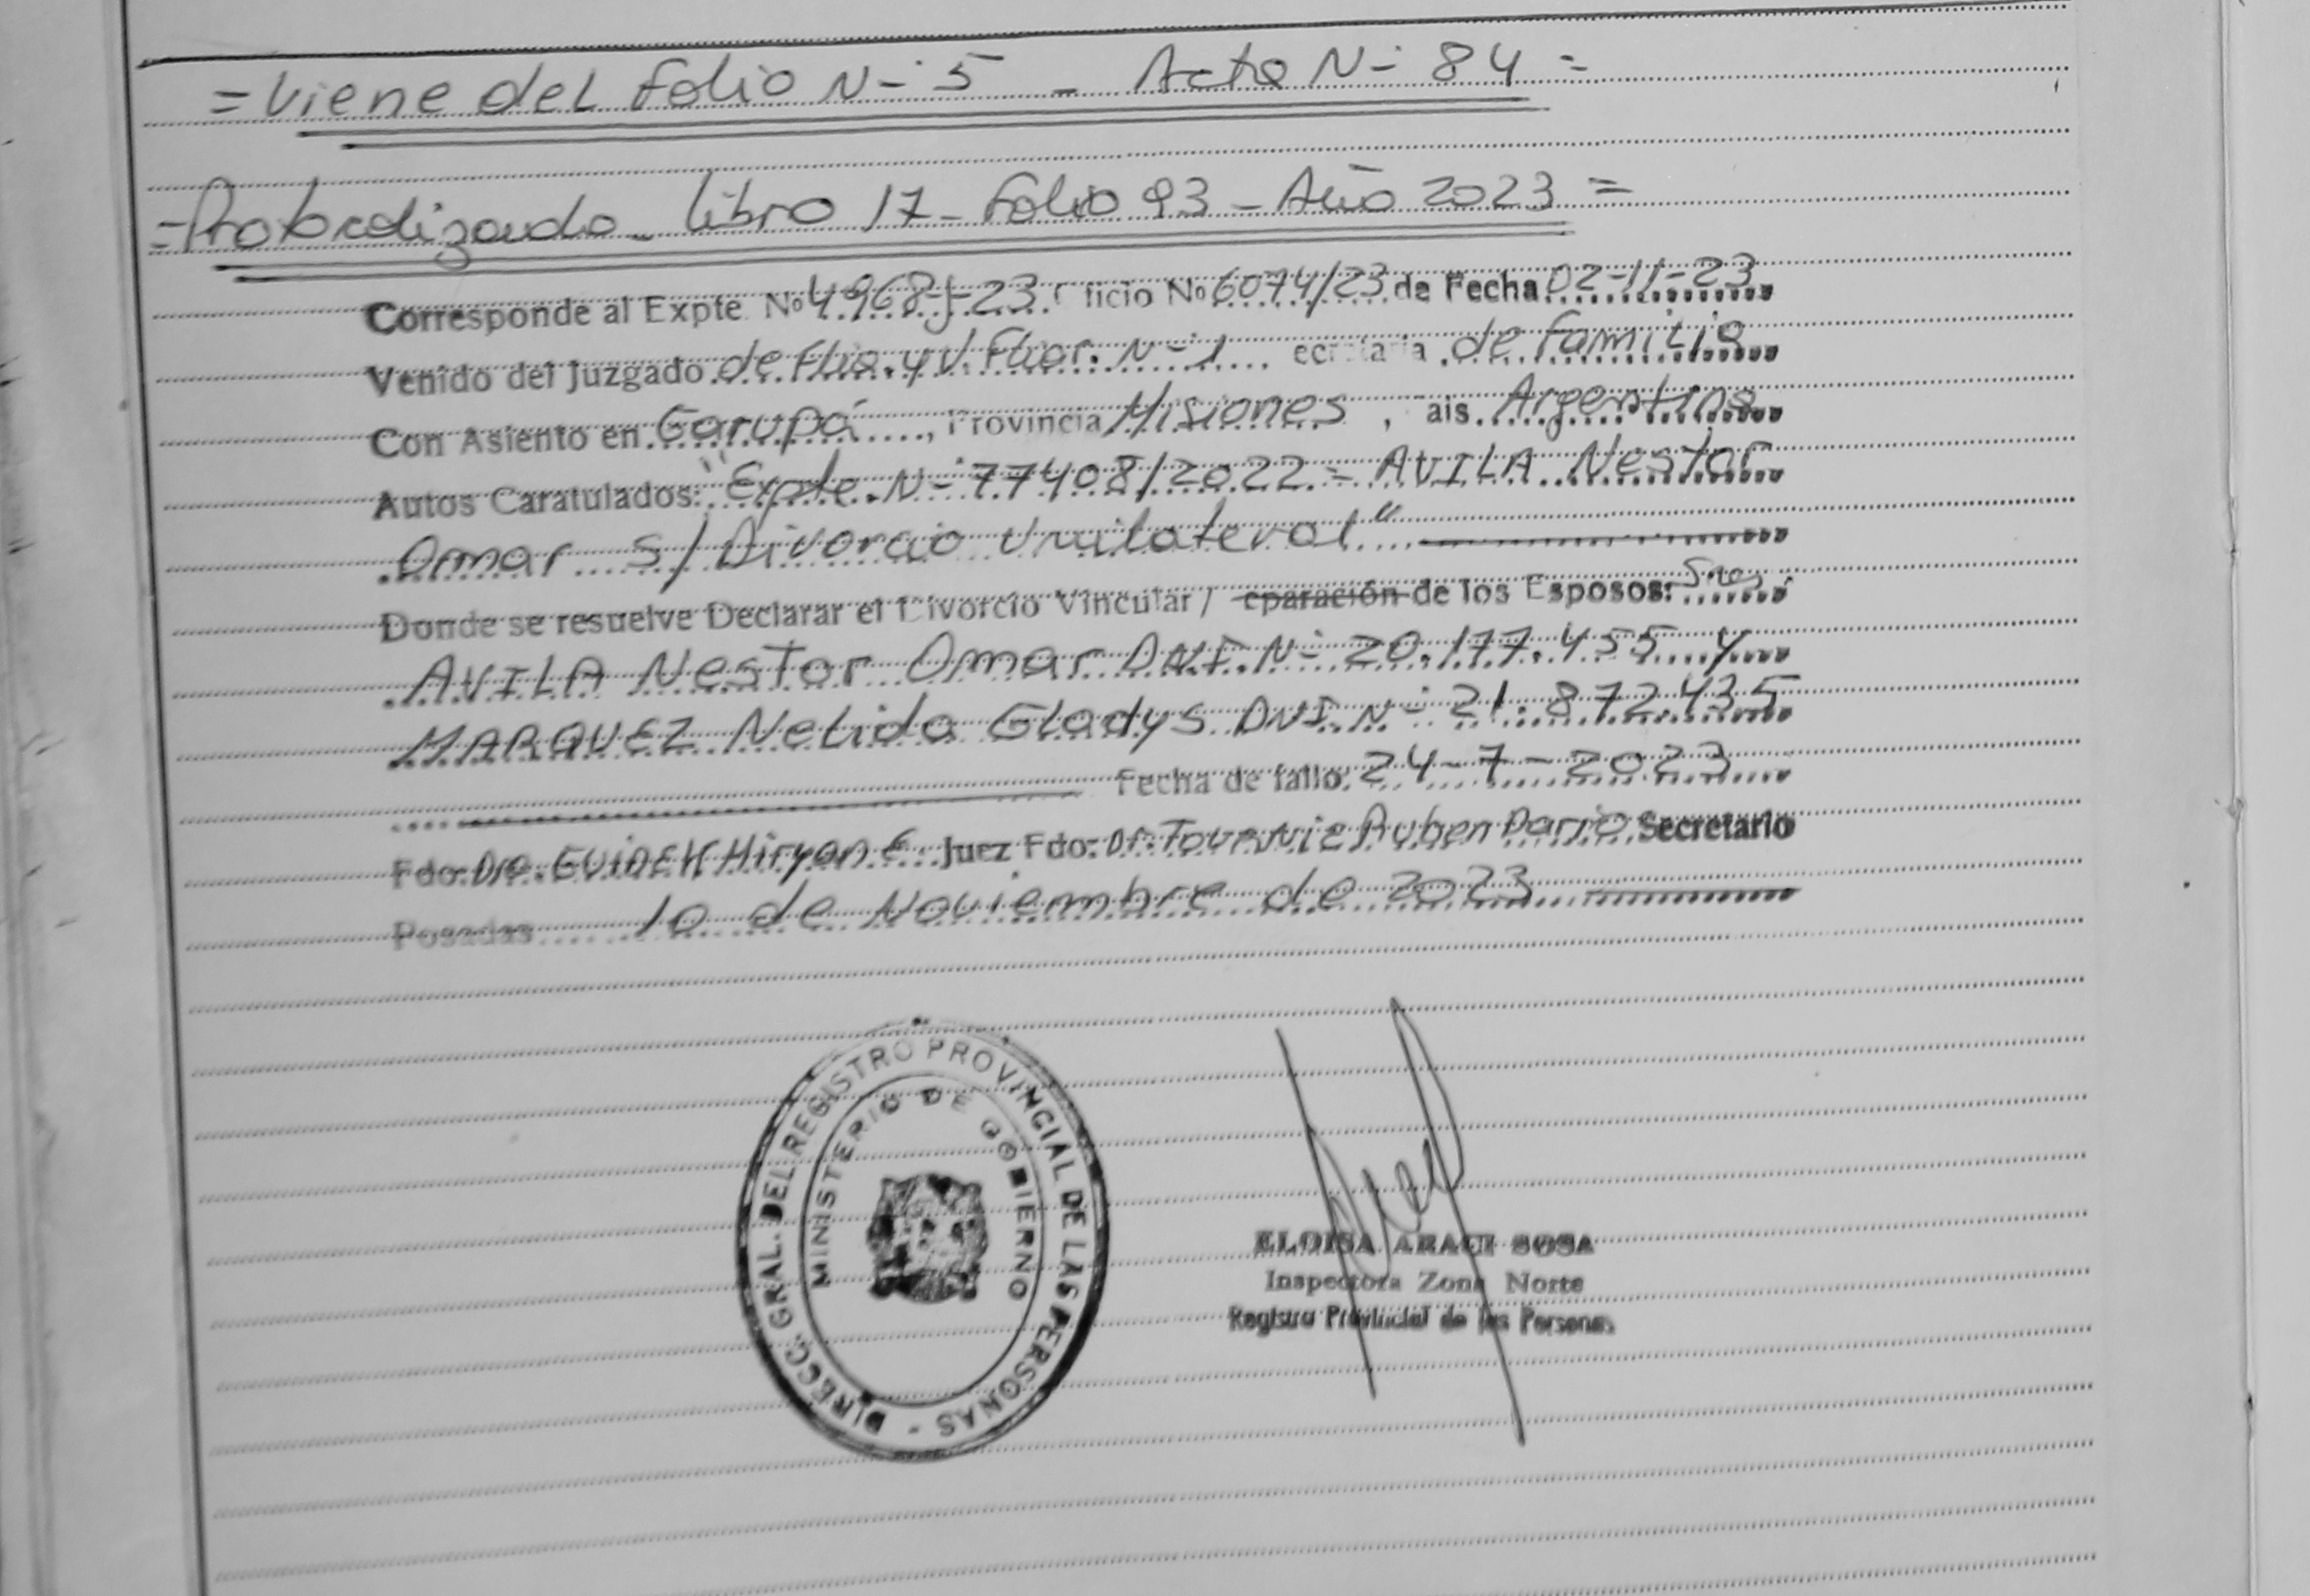 = Viene del Folio N- 5 - Acta N- 84 =
= Protocolizando - Libro 17 - Folio 93 - Año 2023 =
Corresponde al Expte. Nº 4968-J-23. ficio Nº 6074/23 de Fecha 02-11-23
Venido del Juzgado de Flia. y V. Fliar. N-1 ecretaria de Familia
Con Asiento en Garupá, Provincia Misiones, ais. Argentina
Autos Caratulados: "Expte. N- 77408/2022 = AVILA Nestor
Omar s/ Divorcio Unilateral"
Donde se resuelve Declarar el Divorcio Vincular / eparación de los Esposos: Sres
AVILA Nestor Omar DNI. N- 20.177.455 y
MARQUEZ Nelida Gladys DNI. N- 21.872.435
Fecha de fallo: 24-7-2023
Fdo. Dra. Miryan E. Juez Fdo: Dr. Ruben Dario Secretario
Posadas 10 de Noviembre de 2023
DIRECC. GRAL. DEL REGISTRO PROVINCIAL DE LAS PERSONAS -
MINISTERIO DE GOBIERNO
ELOISA ARACI SOSA
Inspectora Zona Norte
Registro Provincial de las Personas